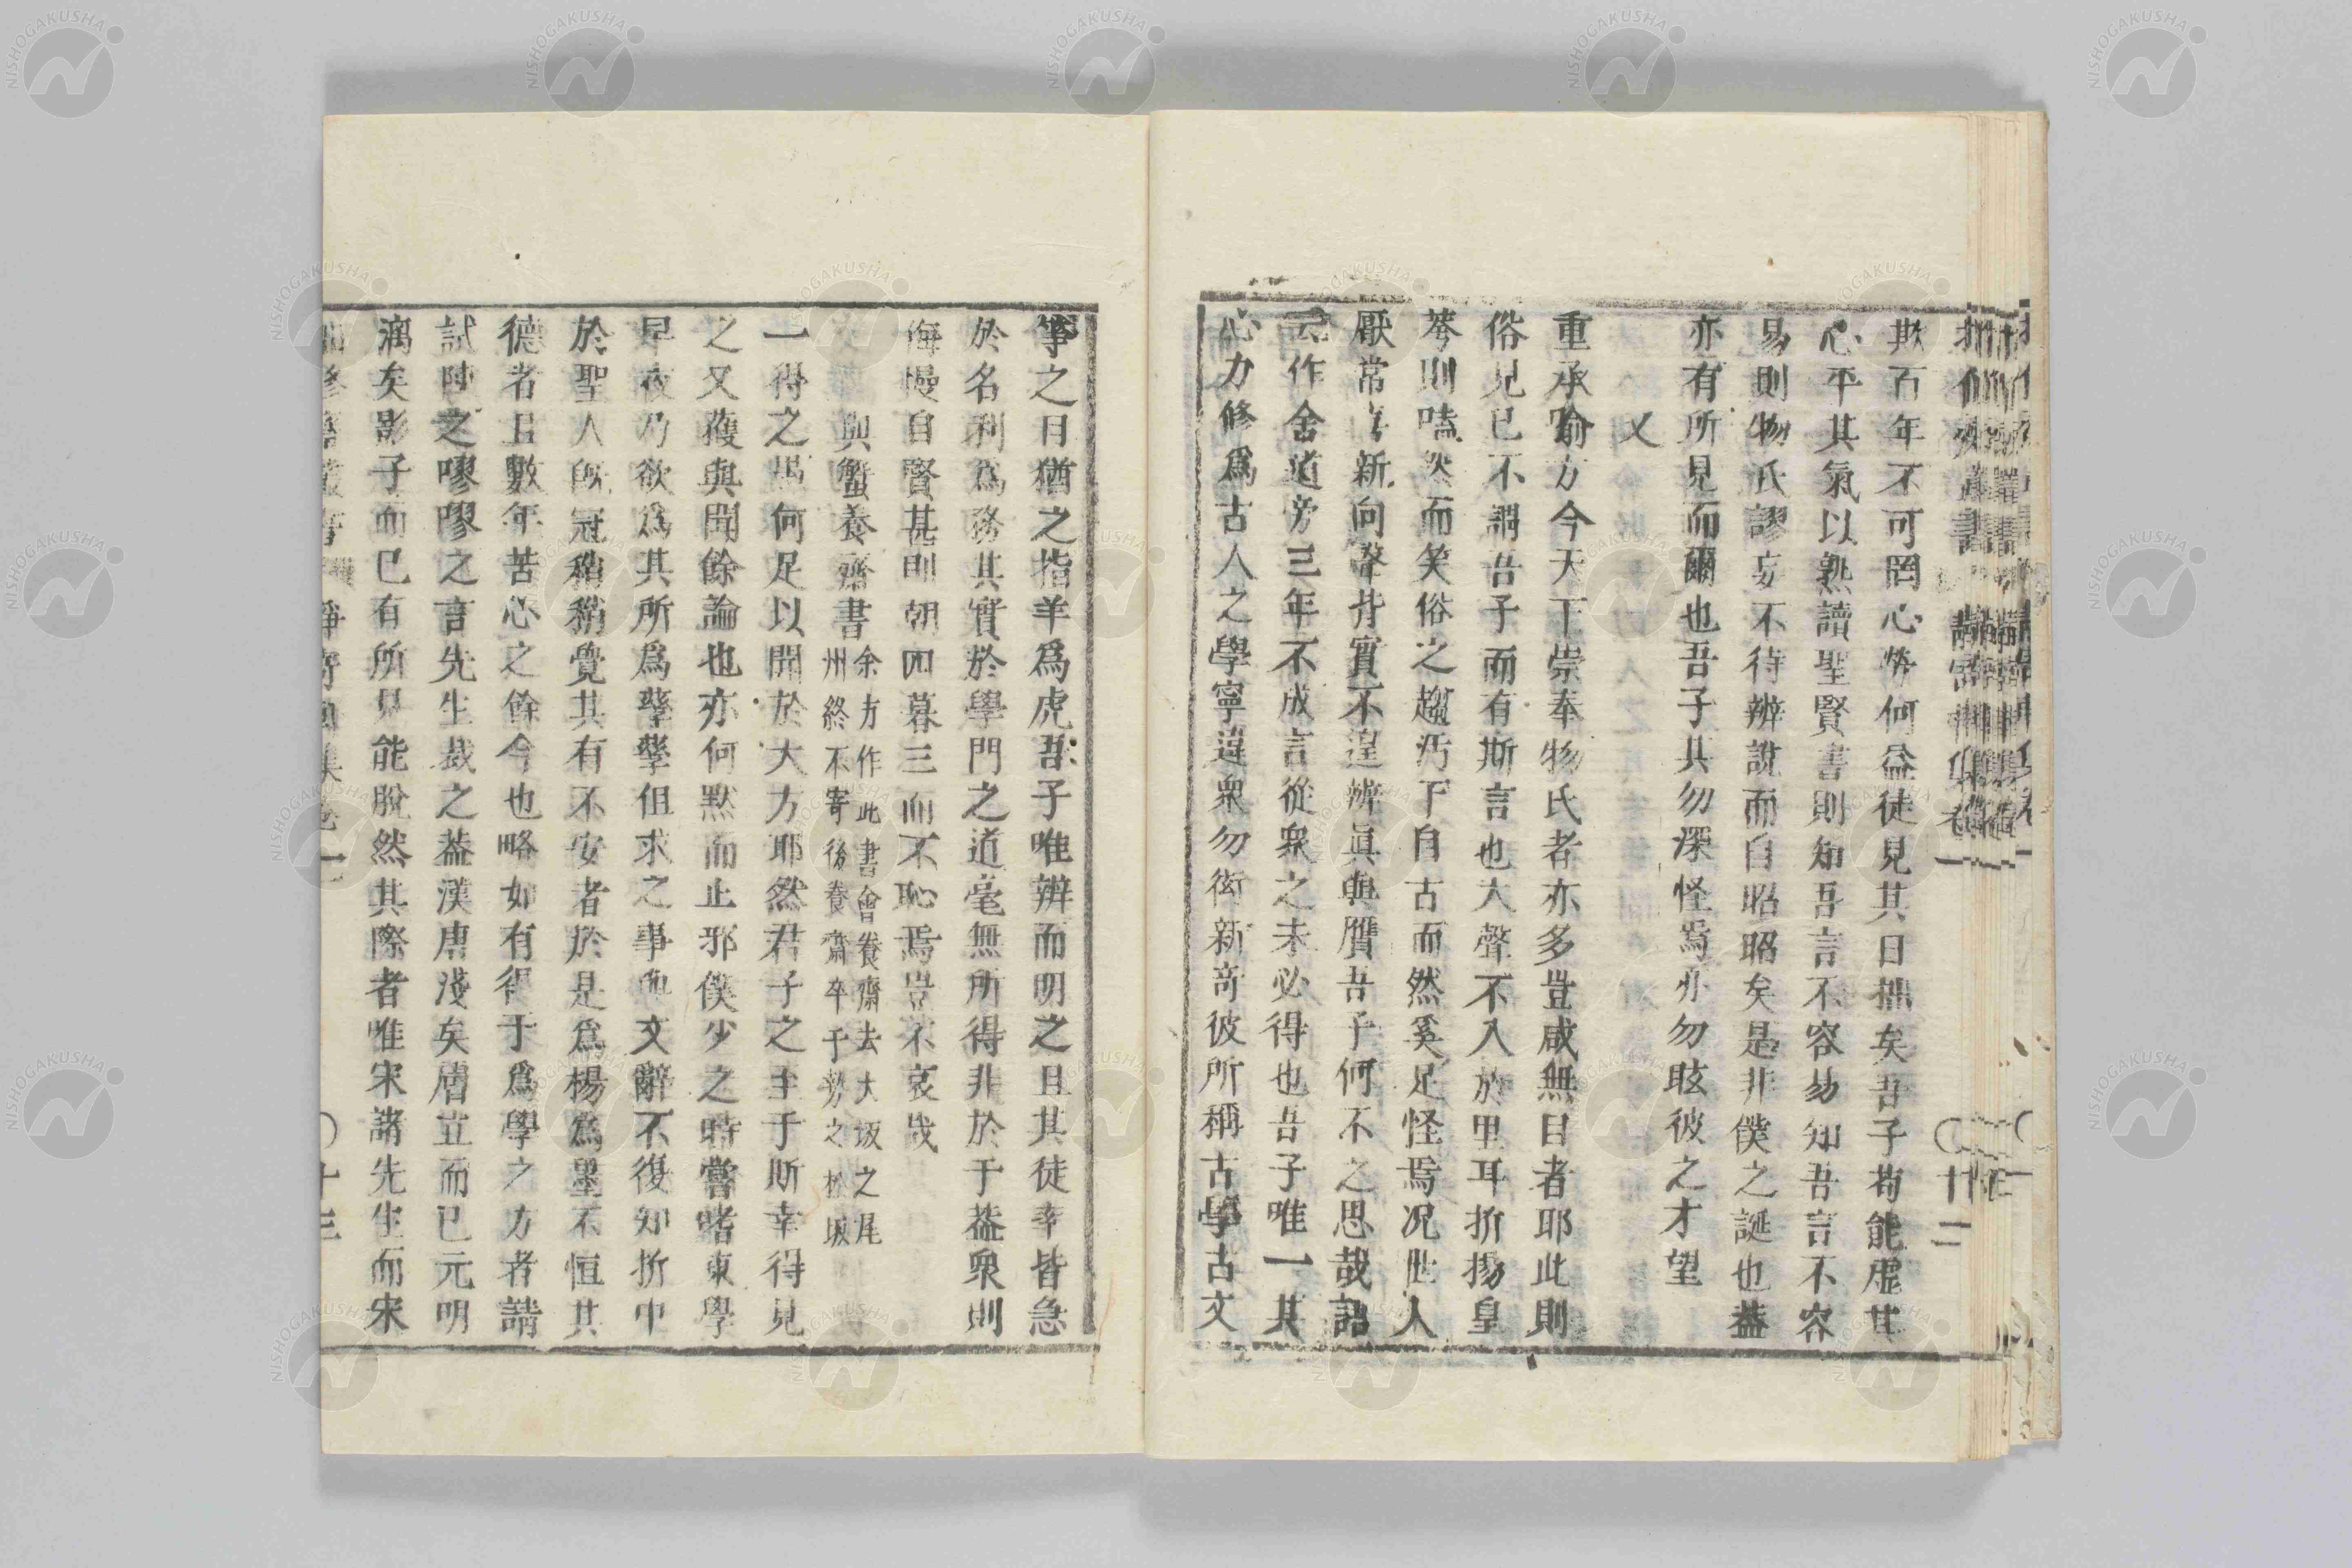 欺百年不可罔心勞何益徒見其日拙矣吾子苟能虛其
心平其氣以熟讀聖賢書則知吾言不容易知吾言不容
易則物氏謬妄不待辨說而自昭昭矣是非僕之誕也蓋
亦有所見而爾也吾子其勿深怪焉亦勿眩彼之才望
又
重承喻方今天下崇奉物氏者亦多豈咸無目者耶此則
俗見已不謂吾子而有斯言也大聲不入於里耳折揚皇
荂則嗑然而笑俗之趨汚下自古而然奚足怪焉况世人
厭常喜新向聲背實不遑辨眞與贋吾子何不之思哉語
云作舍道旁三年不成言從衆之未必得也吾子唯一其
心力修爲古人之學寧違衆勿衒新奇彼所稱古學古文
等之日猶之指羊爲虎吾子唯辨而明之且其徒率皆急
於名利爲務其實於學門之道毫無所得非於于蓋衆則
侮慢自賢甚則朝四暮三而不恥焉豈不哀哉
與蟹養齋書
余方作此書會養齋去大坂之尾
州終不寄後養齋卒于勢之松坂
一得之愚何足以聞於大方耶然君子之至于斯幸得見
之又獲與聞餘論也亦何默而止邪僕少之時嘗嗜東學
早夜乃欲爲其所爲孳孳但求之事與文辭不復知折中
於聖人既冠稍稍覺其有不安者於是爲楊爲墨不恒其
德者且數年苦心之餘今也略如有得于爲學之方者請
試陳之嘐嘐之言先生裁之蓋漢唐淺矣膚豈而已元明
漓矣影子而已有所見能脫然其際者唯宋諸先生而宋